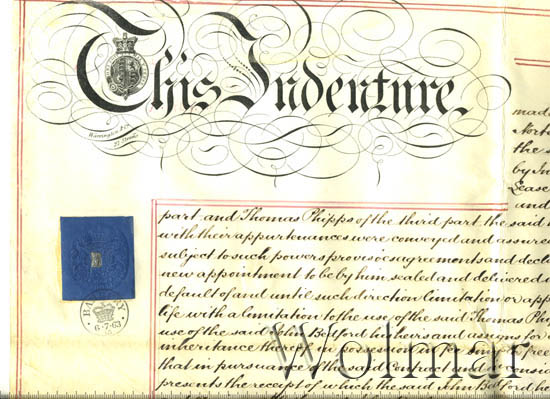 This Indenture
Warrington & Co
27 Strand
made
North
the s
by In
Lease
and
part and Thomas Phipps of the third part the said
with their appurtenances were conveyed and assured
subject to such powers provisoes agreements and decla
new appointment to be by him sealed and delivered
default of and until such direction limitation or app
life with a limitation to the use of the said Thomas Phi
use of the said John Bedford his heirs and assigns for
inheritance thereof in possession in fee simple free
that in pursuance of the said Contract and consid
presents the receipt of which the said John Bedford he
6·7·63
Wolmar